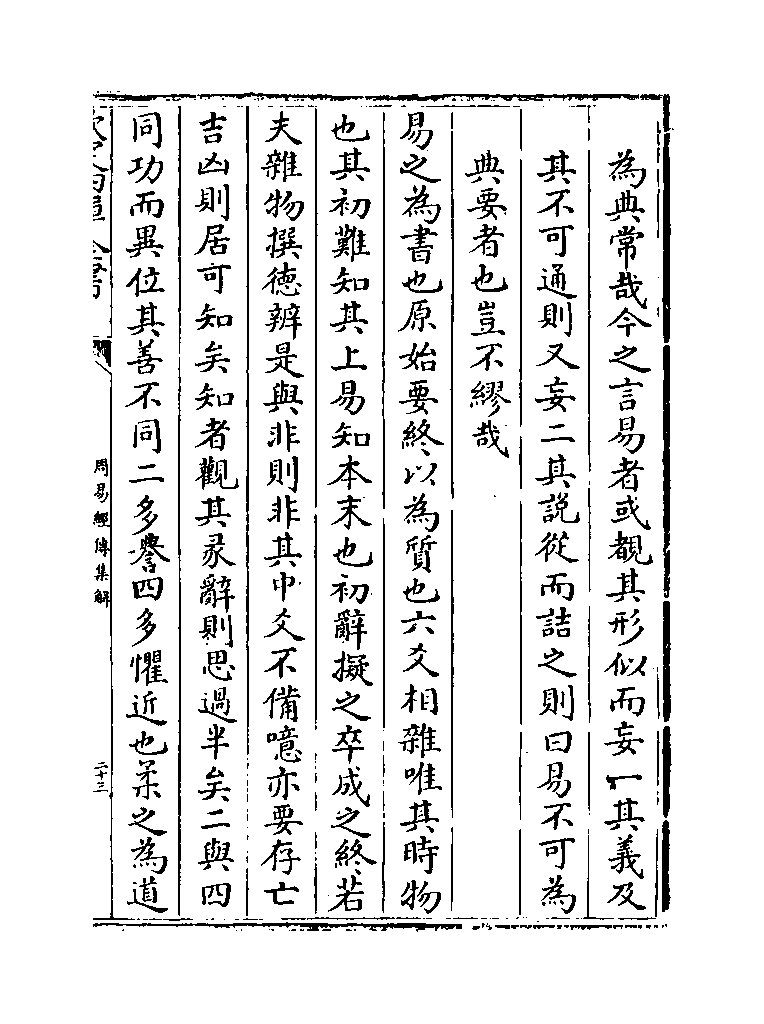 為典常哉今之言易者或覩其形似而妄一其義及
其不可通則又妄二其説從而詰之則曰易不可為
典要者也豈不繆哉
易之為書也原始要終以為質也六爻相雜唯其時物
也其初難知其上易知本末也初辭擬之卒成之終若
夫雜物撰德辨是與非則非其中爻不備噫亦要存亡
吉凶則居可知矣知者觀其彖辭則思過半矣二與四
同功而異位其善不同二多譽四多懼近也柔之為道
周易經傳集解
二十三